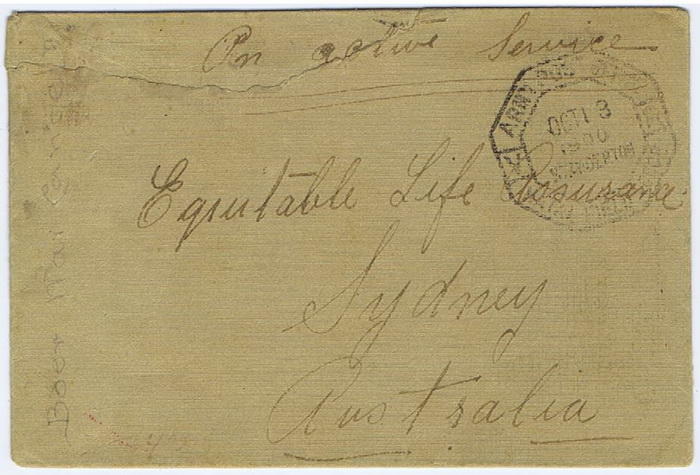 On active Service
ARMY
OCT 13
1900
Equitable Life Assurance
Sydney
Australia
Boer War